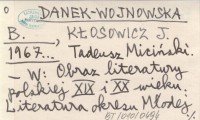 DANEK-WOJNOWSKA
B., KŁOSOWICZ J.
1967... Tadeusz Miciński.
– W: Obraz literatury
polskiej XIX i XX wieku:
Literatura okresu Młodej
./.
BT/010/0494